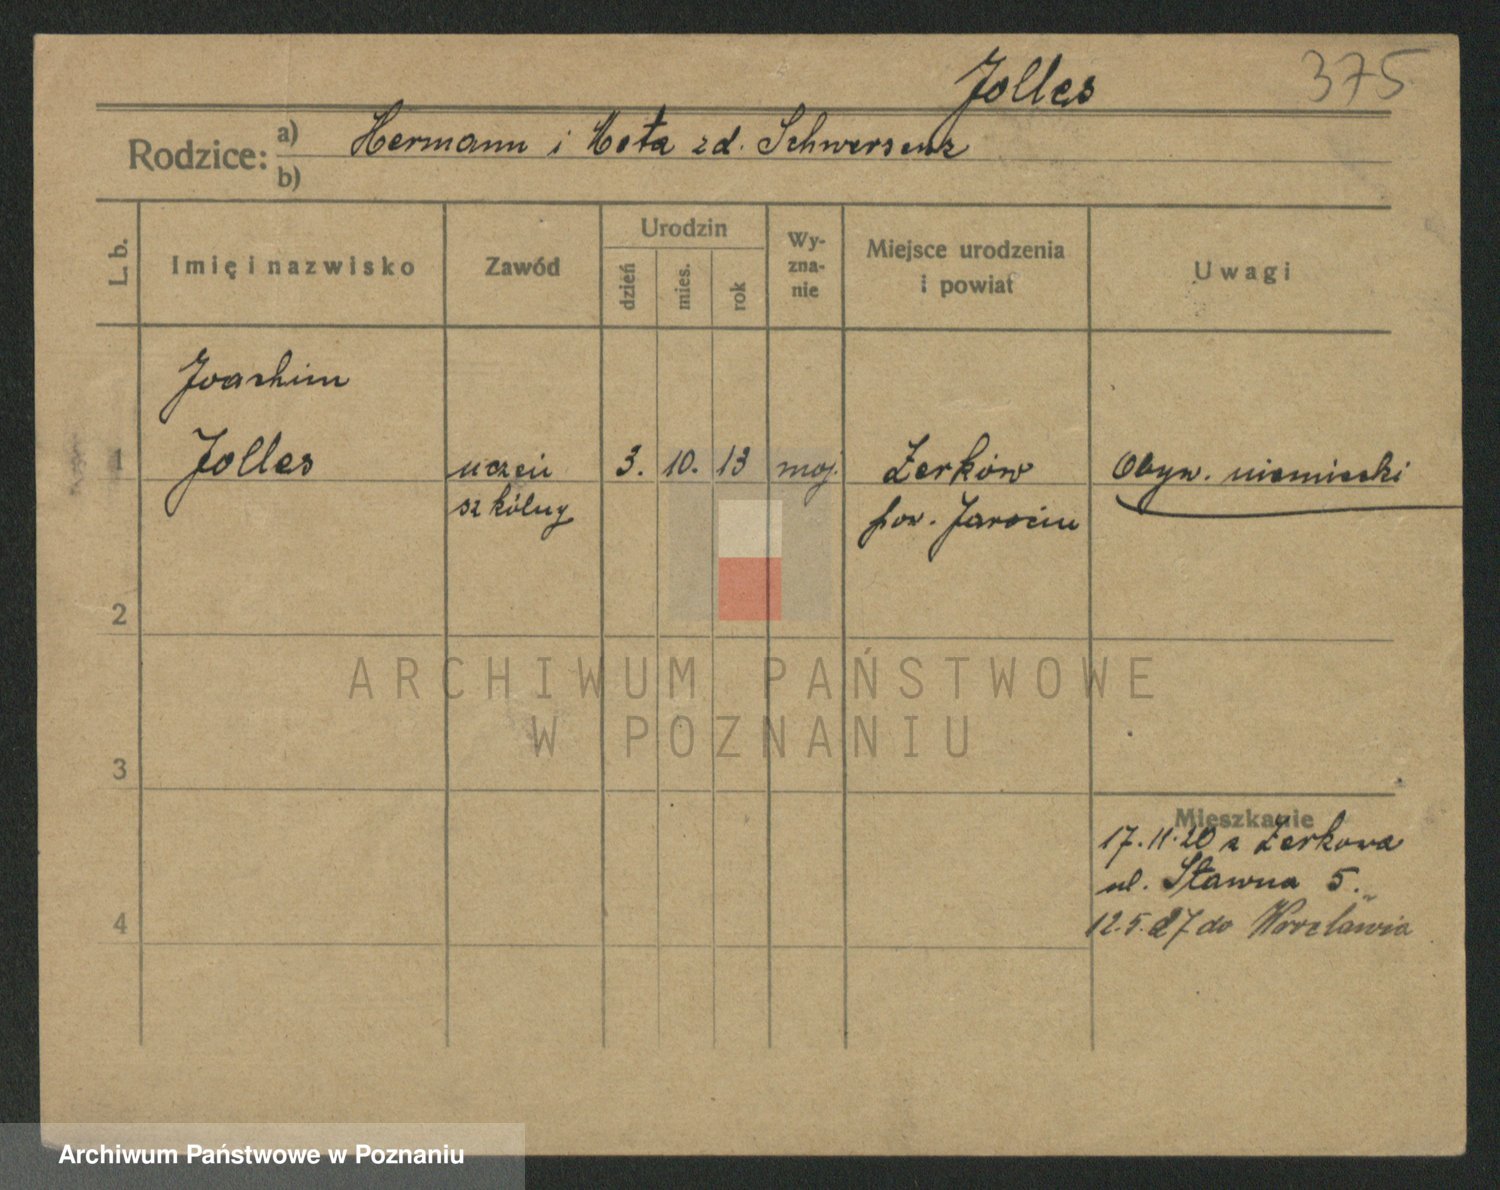 Jolles
375
Rodzice:
a) Hermann i Meta zd. Schwersenz
b)
L. b.
Imię i nazwisko
Zawód
Urodzin
dzień
mies.
rok
Wy-
zna-
nie
Miejsce urodzenia
i powiat
Uwagi
Joachim
1 Jolles uczeń 3. 10. 13 moj. Żerków Obyw. niemiecki
szkólny pow. Jarocin
2
ARCHIWUM PAŃSTWOWE
W POZNANIU
3
Mieszkanie
17.11.20 z Żerkowa
ul. Stawna 5.
4 12.5.27 do Wrocławia
Archiwum Państwowe w Poznaniu